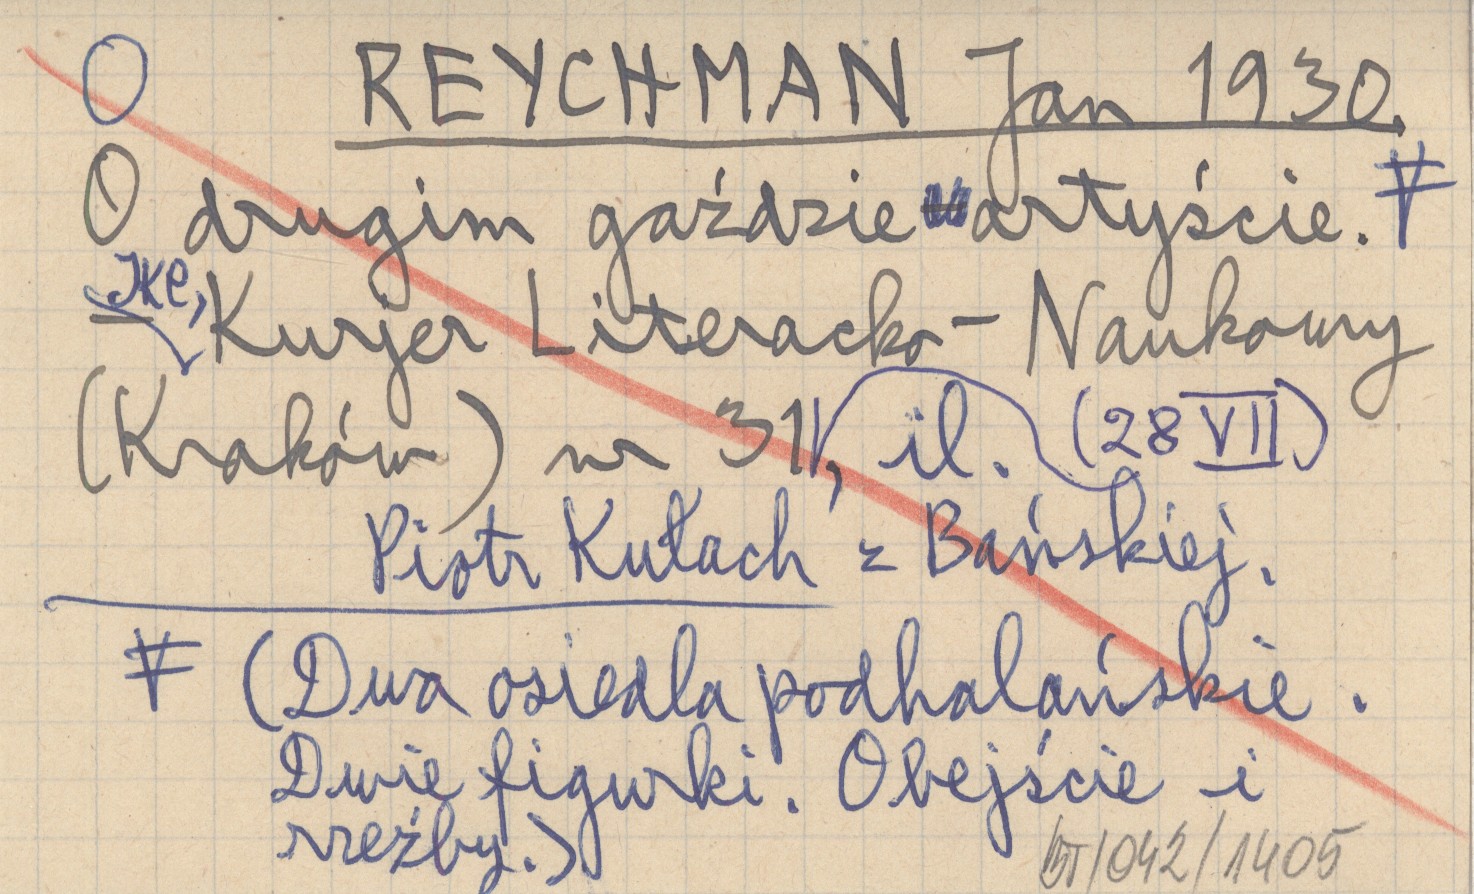 O REYCHMAN Jan 1930.
O drugim gaździe artyście.
IKC, Kurjer Literacko-Naukowy
(Kraków) nr 31, il. (28 VII)
Piotr Kułach z Bańskiej.
(Dwa osiedla podhalańskie.
Dwie figurki. Obejście i
rzeźby.)
BT/042/1405